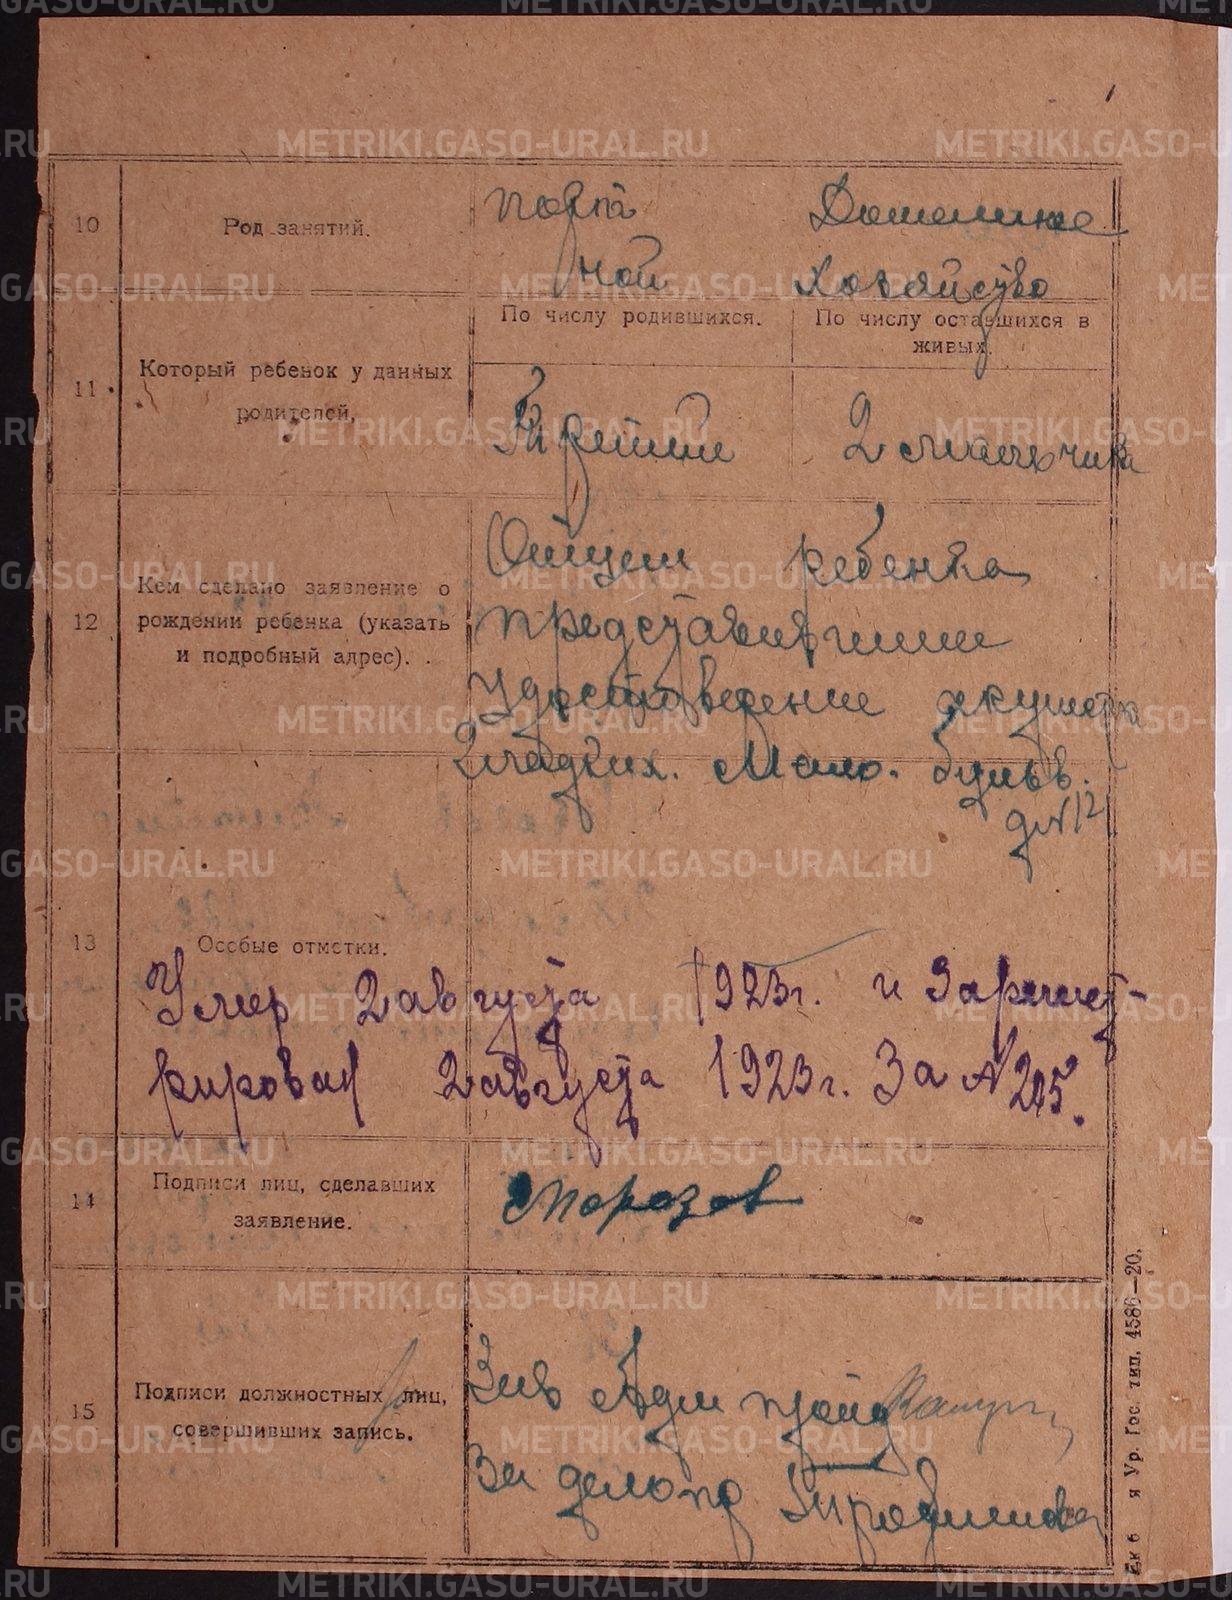 10
Род занятий.
Порт
ной
Домашнее
хозяйство
11
Который ребенок у данных
родителей.
По числу родившихся.
По числу оставшихся в
живых.
Третий
2 мальчика
12
Кем сделано заявление о
рождении ребенка (указать
и подробный адрес).
Отцем ребенка
представившим
удостоверение акушерки
Гладких. Мало. бульв.
д №12
13
Особые отметки.
Умер 2 августа 1923г. и Зарегист-
рирован 2 августа 1923г. За № 205.
14
Подписи лиц, сделавших
заявление.
Морозов
15
Подписи должностных лиц,
совершивших запись.
Зав
За делопр
Ур. Гос. тип. 4586—20.
METRIKI.GASO-URAL.RU